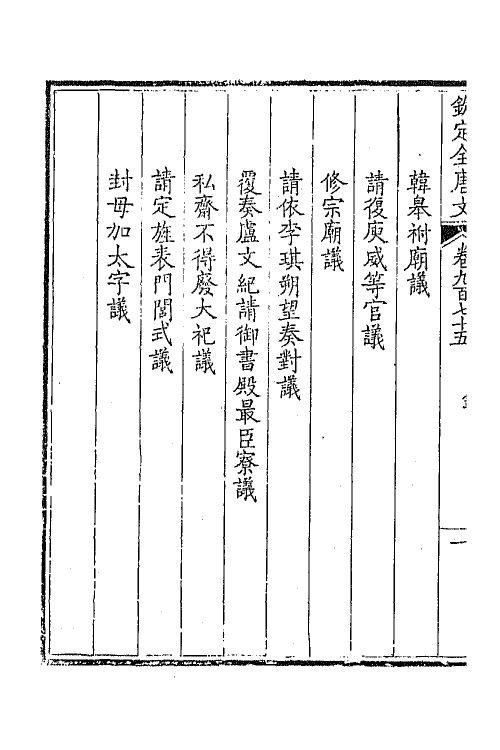 欽定全唐文 卷九百七十五
一
韓皋祔廟議
請復庾威等官議
修宗廟議
請依李琪朔望奏對議
覆奏盧文紀請御書殿最臣寮議
私齋不得廢大祀議
請定旌表門閭式議
封母加太字議